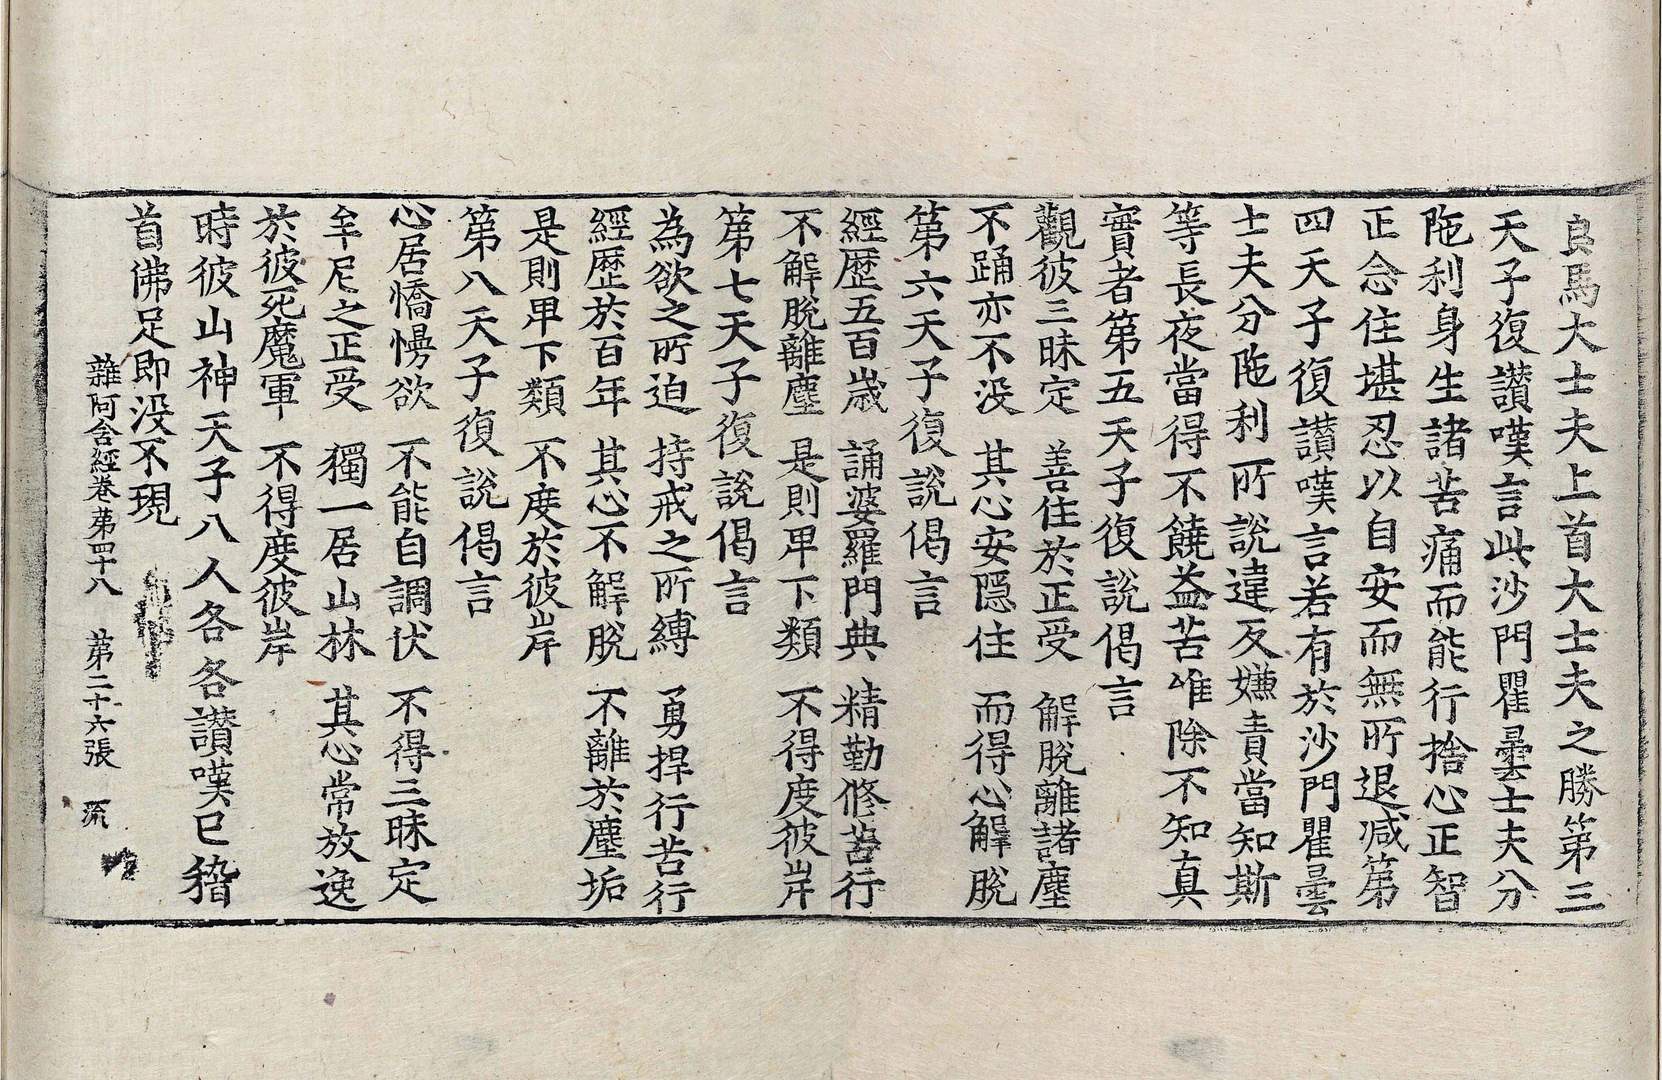 良馬大士夫上首大士夫之勝第三
天子復讃嘆言此沙門瞿曇士夫分
陁利身生諸苦痛而能行捨心正智
正念住堪忍以自安而無所退减第
四天子復讃嘆言若有於沙門瞿曇
士夫分陁利所說違反嫌責當知斯
等長夜當得不饒益苦唯除不知真
實者第五天子復說偈言
觀彼三昧定 善住於正受 解脫離諸塵
不踊亦不没 其心安隱住 而得心解脫
第六天子復說偈言
經歷五百歲 誦婆羅門典 精勤修苦行
不解脫離塵 是則卑下類 不得度彼岸
第七天子復說偈言
為欲之所迫 持戒之所縛 勇捍行苦行
經歷於百年 其心不解脫 不離於塵垢
是則卑下類 不度於彼岸
第八天子復說偈言
心居憍慢欲 不能自調伏 不得三昧定
牟尼之正受 獨一居山林 其心常放逸
於彼死魔軍 不得度彼岸
時彼山神天子八人各各讃嘆已稽
首佛足即没不現
雜阿含經卷苐四十八 苐二十六張 流